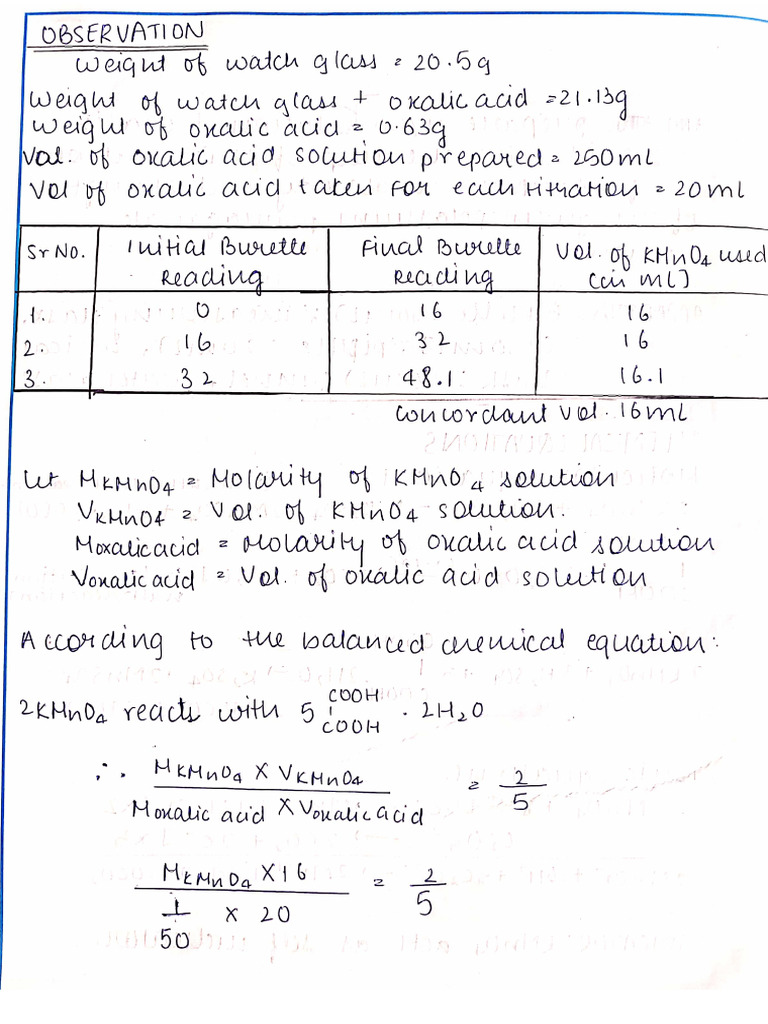 OBSERVATION
Weight of watch glass = 20.5g
Weight of watch glass + oxalic acid = 21.13g
Weight of oxalic acid = 0.63g
Vol. of oxalic acid solution prepared = 250ml
Vol of oxalic acid taken for each titration = 20ml
Sr No. Initial Burette Reading Final Burette Reading Vol. of KMnO4 used (in mL)
1. 0 16 16
2. 16 32 16
3. 32 48.1 16.1
Concordant Vol. 16ml
Let MKMnO4 = Molarity of KMnO4 solution
VKMnO4 = Vol. of KMnO4 solution
Moxalic acid = Molarity of oxalic acid solution
Voxalic acid = Vol. of oxalic acid solution
According to the balanced chemical equation:
2KMnO4 reacts with 5 COOH
COOH . 2H2O
∴ MKMnO4 X VKMnO4 / Moxalic acid X Voxalic acid = 2/5
MKMnO4 X 16 / 1/50 X 20 = 2/5